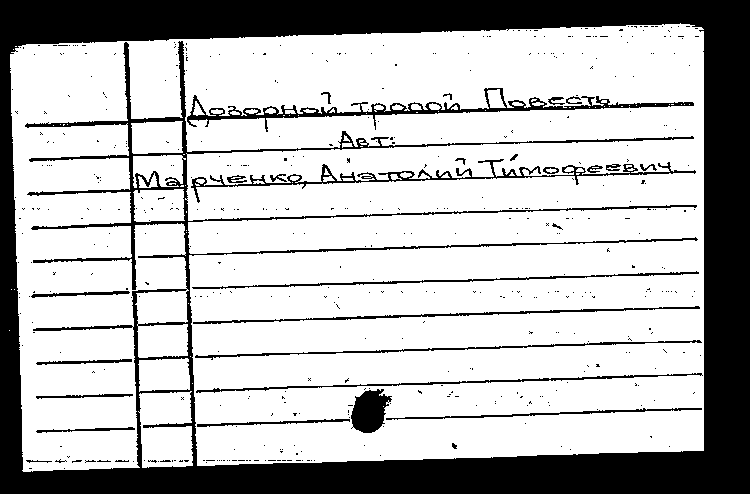 Дозорной тропой. Повесть.
Авт:
Марченко, Анатолий Тимофеевич.